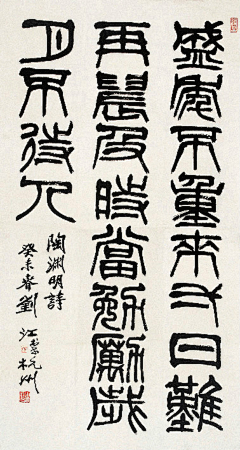 盛年不重來一日難
再晨及時當勉勵歲
月不待人
陶淵明詩
癸未春劉江篆於杭州